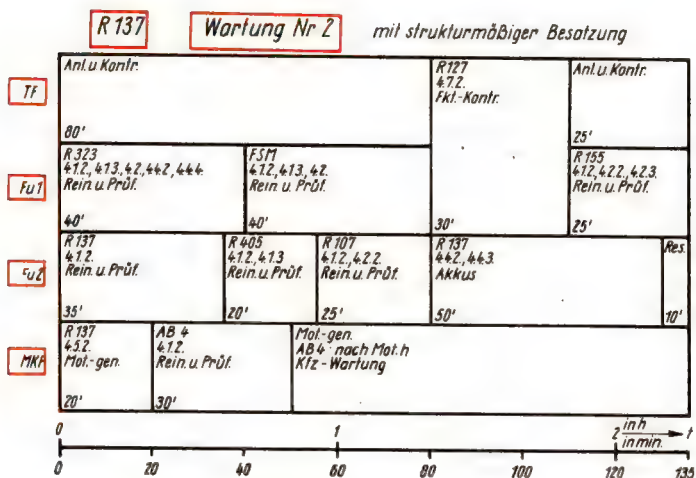 R 137 Wartung Nr 2 mit strukturmäßiger Besatzung
TF
Anl. u. Kontr.
80'
R 127
4.7.2.
Fkt.-Kontr.
30'
Anl. u. Kontr.
25'
Fu1
R 323
4.1.2., 4.1.3., 4.2., 4.4.2., 4.4.4.
Rein. u. Prüf.
40'
FSM
4.1.2., 4.1.3., 4.2.
Rein. u. Prüf.
40'
R 155
4.1.2., 4.2.2., 4.2.3.
Rein. u. Prüf.
25'
Fu2
R 137
4.1.2.
Rein. u. Prüf.
35'
R 405
4.1.2., 4.1.3
Rein. u. Prüf.
20'
R 107
4.1.2., 4.2.2.
Rein. u. Prüf.
25'
R 137
4.4.2., 4.4.3.
Akkus
50'
Res.
10'
MKF
R 137
4.5.2.
Mot.-gen.
20'
AB 4
4.1.2.
Rein. u. Prüf.
30'
Mot.-gen.
AB 4 nach Mot.h
Kfz-Wartung
0 1 2 in h t
in min.
0 20 40 60 80 100 120 135